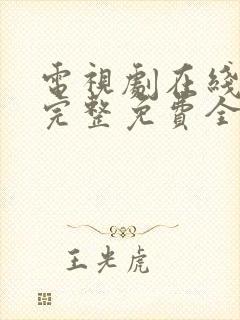 電視劇在綫
完整免費全
王光虎